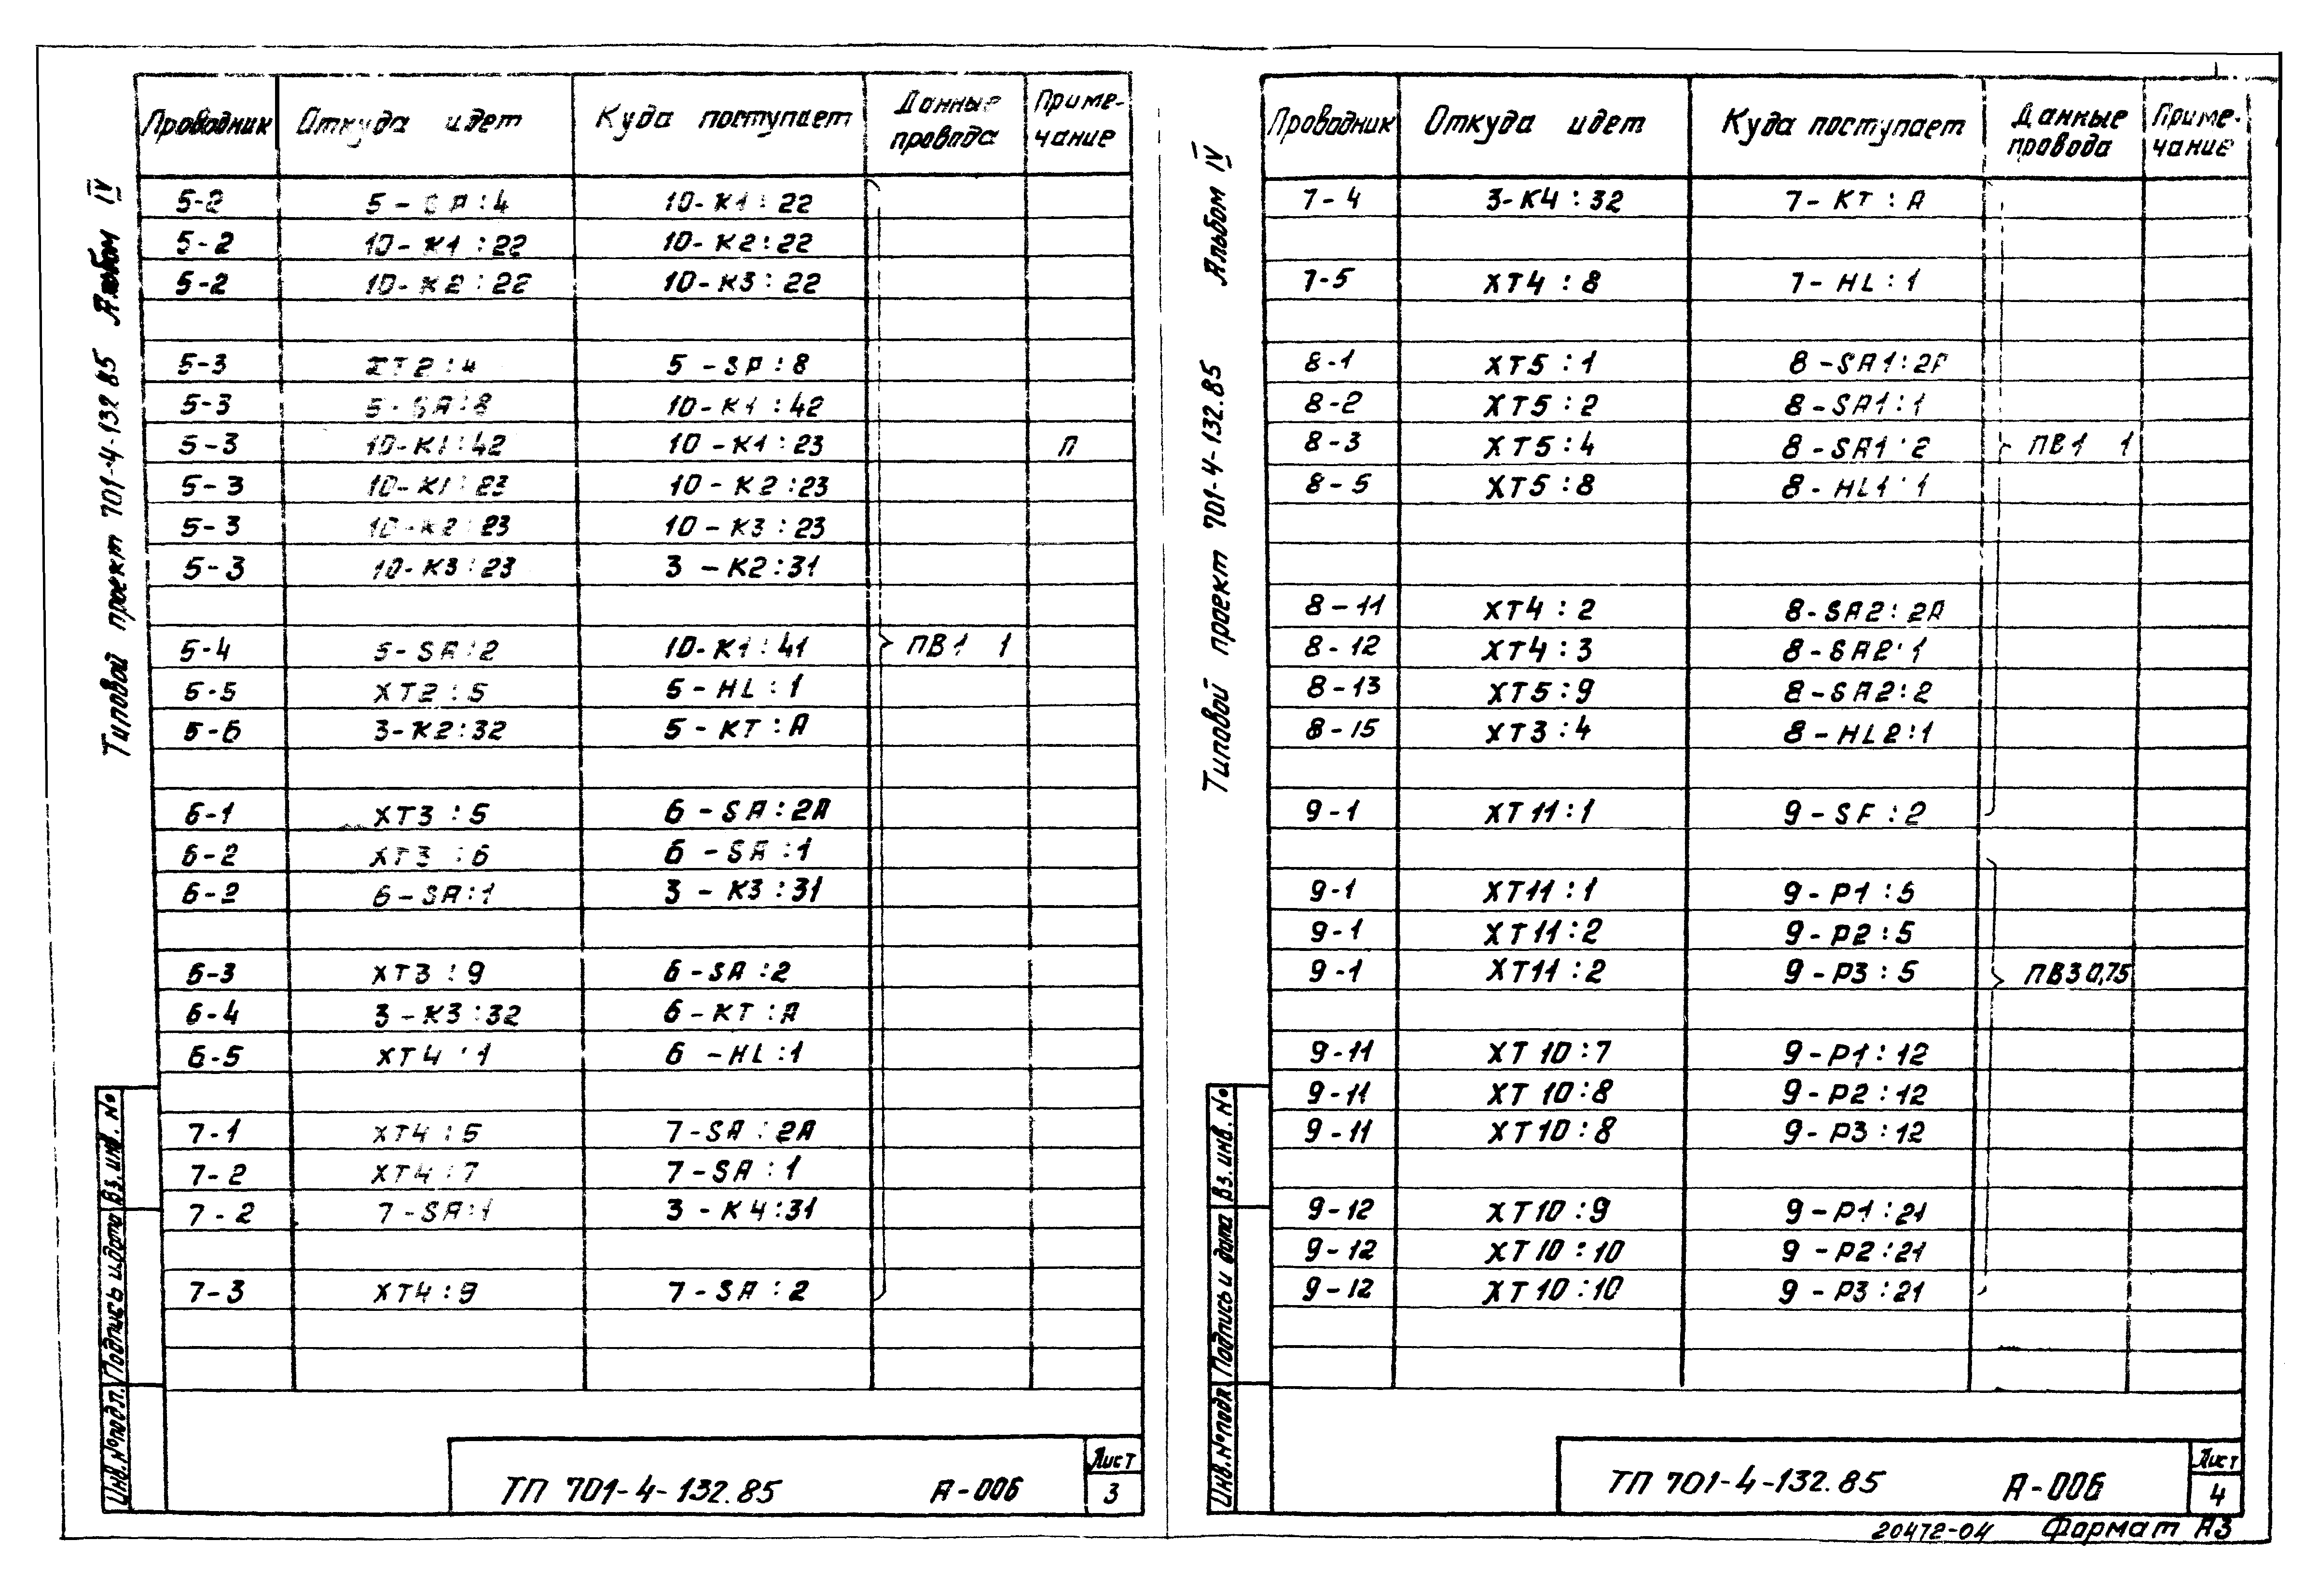 Типовой проект 701-4-132 85 Альбом IV
Проводник Откуда идет Куда поступает Данные провода Приме-чание
5-2 5-SA:4 10-К1:22
5-2 10-К1:22 10-К2:22
5-2 10-К2:22 10-К3:22
5-3 ХТ2:4 5-SA:8
5-3 5-SA:8 10-К1:42
5-3 10-К1:42 10-К1:23 П
5-3 10-К1:23 10-К2:23
5-3 10-К2:23 10-К3:23
5-3 10-К3:23 3-К2:31
5-4 5-SA:2 10-К1:41 ПВ1 1
5-5 ХТ2:5 5-HL:1
5-6 3-К2:32 5-КТ:А
6-1 ХТ3:5 6-SA:2А
6-2 ХТ3:6 6-SA:1
6-2 6-SA:1 3-К3:31
6-3 ХТ3:9 6-SA:2
6-4 3-К3:32 6-КТ:А
6-5 ХТ4:1 6-HL:1
7-1 ХТ4:5 7-SA:2А
7-2 ХТ4:7 7-SA:1
7-2 7-SA:1 3-К4:31
7-3 ХТ4:9 7-SA:2
Инв.№подл. Подпись и дата Вз.инв.№
ТП 701-4-132.85 А-006
Лист
3
Типовой проект 701-4-132.85 Альбом IV
Проводник Откуда идет Куда поступает Данные провода Приме-чание
7-4 3-К4:32 7-КТ:А
7-5 ХТ4:8 7-HL:1
8-1 ХТ5:1 8-SA1:2А
8-2 ХТ5:2 8-SA1:1
8-3 ХТ5:4 8-SA1:2 ПВ1 1
8-5 ХТ5:8 8-HL1:1
8-11 ХТ4:2 8-SA2:2А
8-12 ХТ4:3 8-SA2:1
8-13 ХТ5:9 8-SA2:2
8-15 ХТ3:4 8-HL2:1
9-1 ХТ11:1 9-SF:2
9-1 ХТ11:1 9-Р1:5
9-1 ХТ11:2 9-Р2:5
9-1 ХТ11:2 9-Р3:5 ПВ3 0,75
9-11 ХТ10:7 9-Р1:12
9-11 ХТ10:8 9-Р2:12
9-11 ХТ10:8 9-Р3:12
9-12 ХТ10:9 9-Р1:21
9-12 ХТ10:10 9-Р2:21
9-12 ХТ10:10 9-Р3:21
Инв.№подл Подпись и дата Вз.инв.№
ТП 701-4-132.85 А-006
Лист
4
20472-04 Формат А3